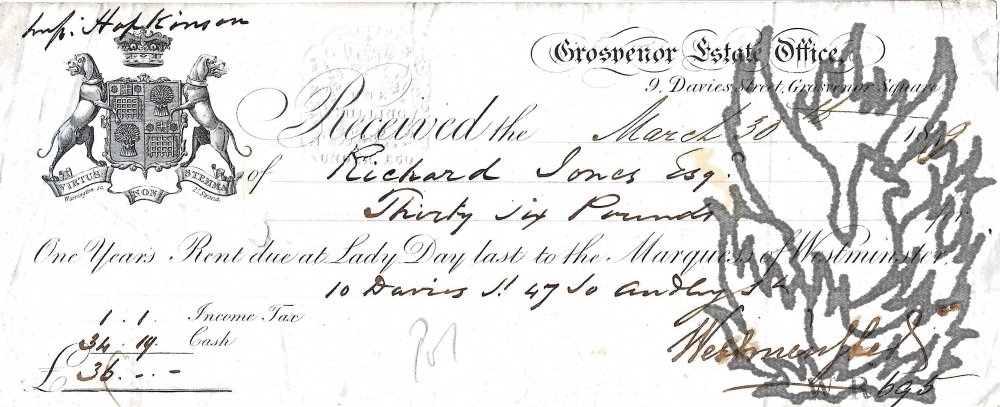 Hopkinson
Grosvenor Estate Office,
9, Davies Street, Grosvenor Square,
Received the March 30th 1849
of Richard Jones Esqr
Thirty six Pounds
One Years Rent due at Lady Day last to the Marquess of Westminster.
10 Davies St 47 So Audley St
1 . 1 . Income Tax
34 . 19 . Cash
£ 36 . - . -
VIRTUS NON STEMMA
Warrington sc. 27 Strand.
W.R 695